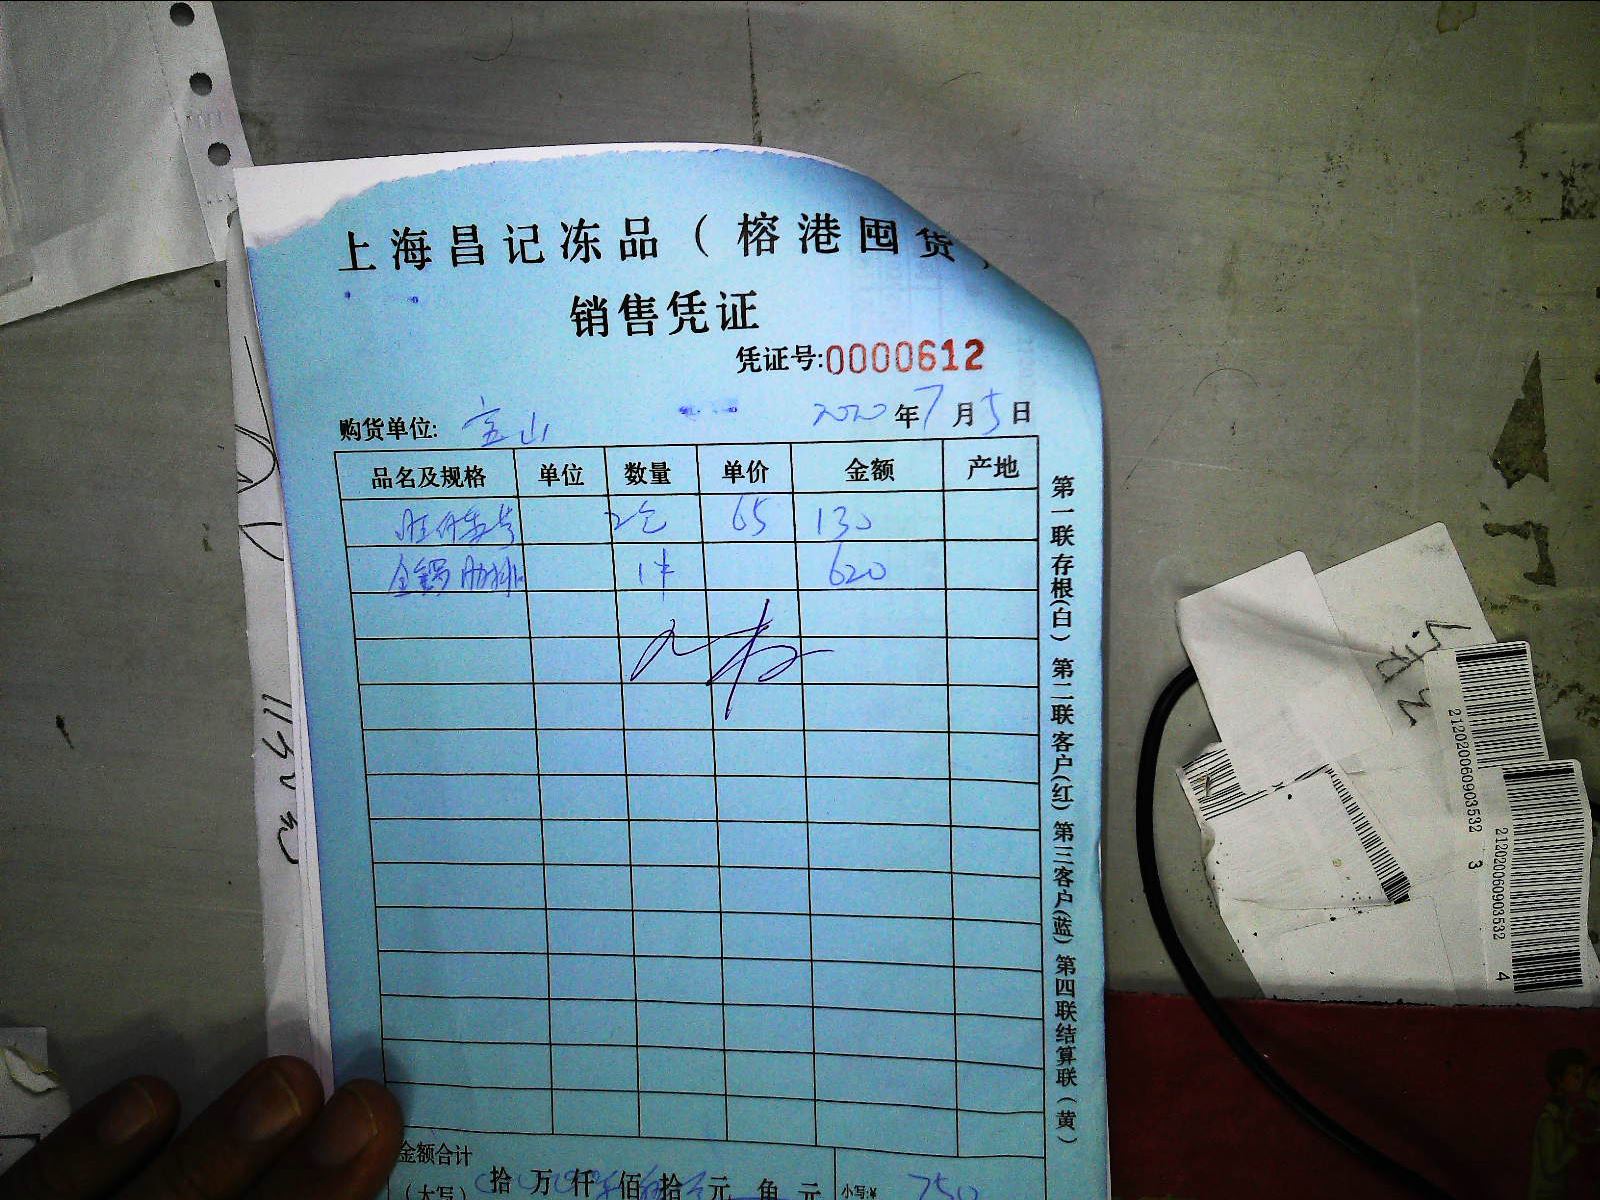 上海昌记冻品（榕港囤货）
销售凭证
凭证号:0000612
购货单位: 宝山 2020年7月5日
品名及规格 单位 数量 单价 金额 产地
2包 65 130
金锣肋排 1件 620
金额合计
（大写） 拾 万 仟 佰 拾 元 角 元 小写:¥ 750
第一联存根(白) 第二联客户(红) 第三客户(蓝) 第四联结算联（黄）
212020060903532 3
212020060903532 4